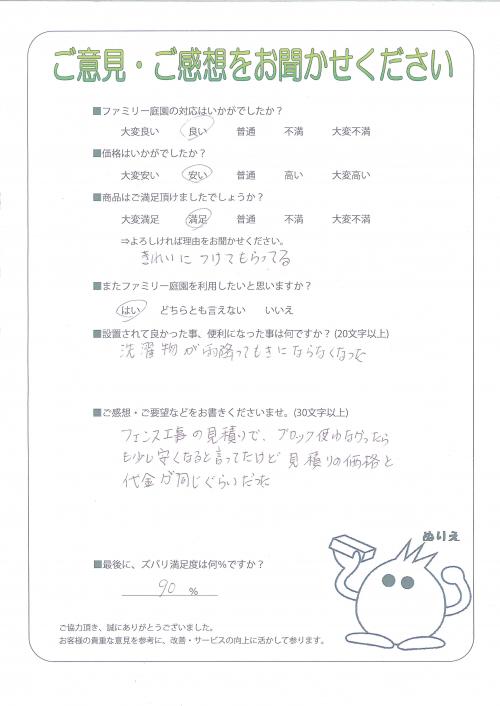 ご意見・ご感想をお聞かせください
■ファミリー庭園の対応はいかがでしたか？
大変良い 良い 普通 不満 大変不満
■価格はいかがでしたか？
大変安い 安い 普通 高い 大変高い
■商品はご満足頂けましたでしょうか？
大変満足 満足 普通 不満 大変不満
⇒よろしければ理由をお聞かせください。
きれいにつけてもらってる
■またファミリー庭園を利用したいと思いますか？
はい どちらとも言えない いいえ
■設置されて良かった事、便利になった事は何ですか？(20文字以上)
洗濯物が雨降ってもきにならなくなった
■ご感想・ご要望などをお書きくださいませ。(30文字以上)
フェンス工事の見積りで、ブロック使わなかったら
も少し安くなると言ってたけど見積りの価格と
代金が同じぐらいだった
ぬりえ
■最後に、ズバリ満足度は何％ですか？
90 ％
ご協力頂き、誠にありがとうございました。
お客様の貴重な意見を参考に、改善・サービスの向上に活かして参ります。